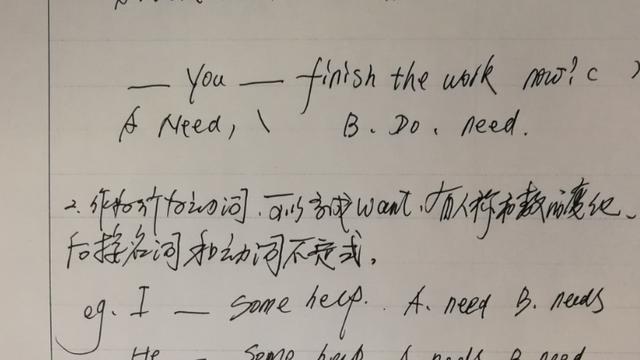 — You — finish the work now? ( )
A Need, \ B. Do、need.
2. 作为行为动词,可以看成want,有人称和数的变化、
后接名词和动词不定式。
eg. I — some help. A. need B. needs
He — some help A. needs B. need